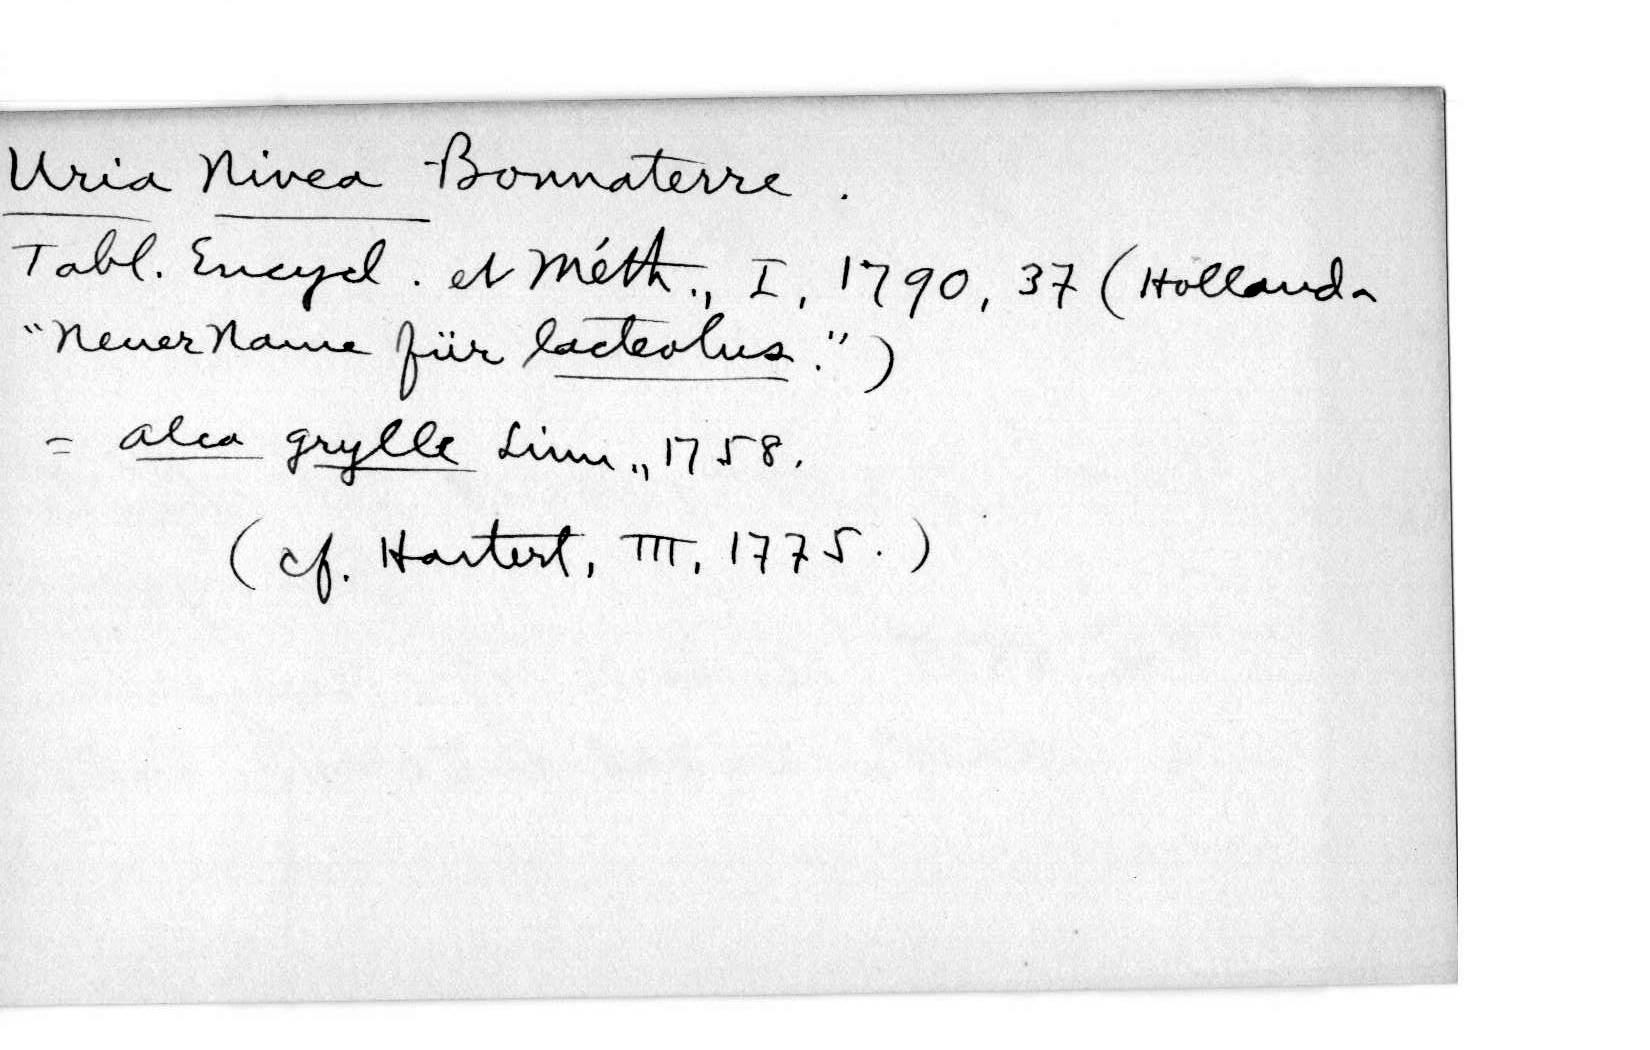 Uria Nivea Bonnaterre.
Tabl. Encycl. et Méth., I, 1790, 37 (Holland -
"Neuer Name für lacteolus.")
= Alca grylle Linn., 1758.
(cf. Hartert, III, 1775.)